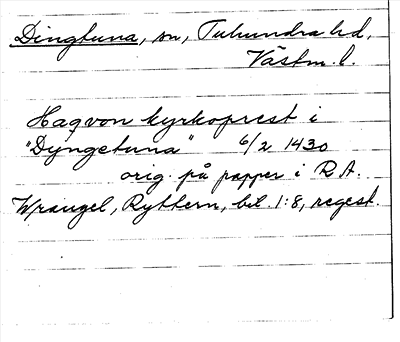 Dingtuna, sn, Tuhundra hd,
Västm. l.
Haqvon kyrkoprest i
"Dyngetuna" 6/2 1430
orig. på papper i R A.
Wrangel, Ryttern, bil. 1:8, regest.